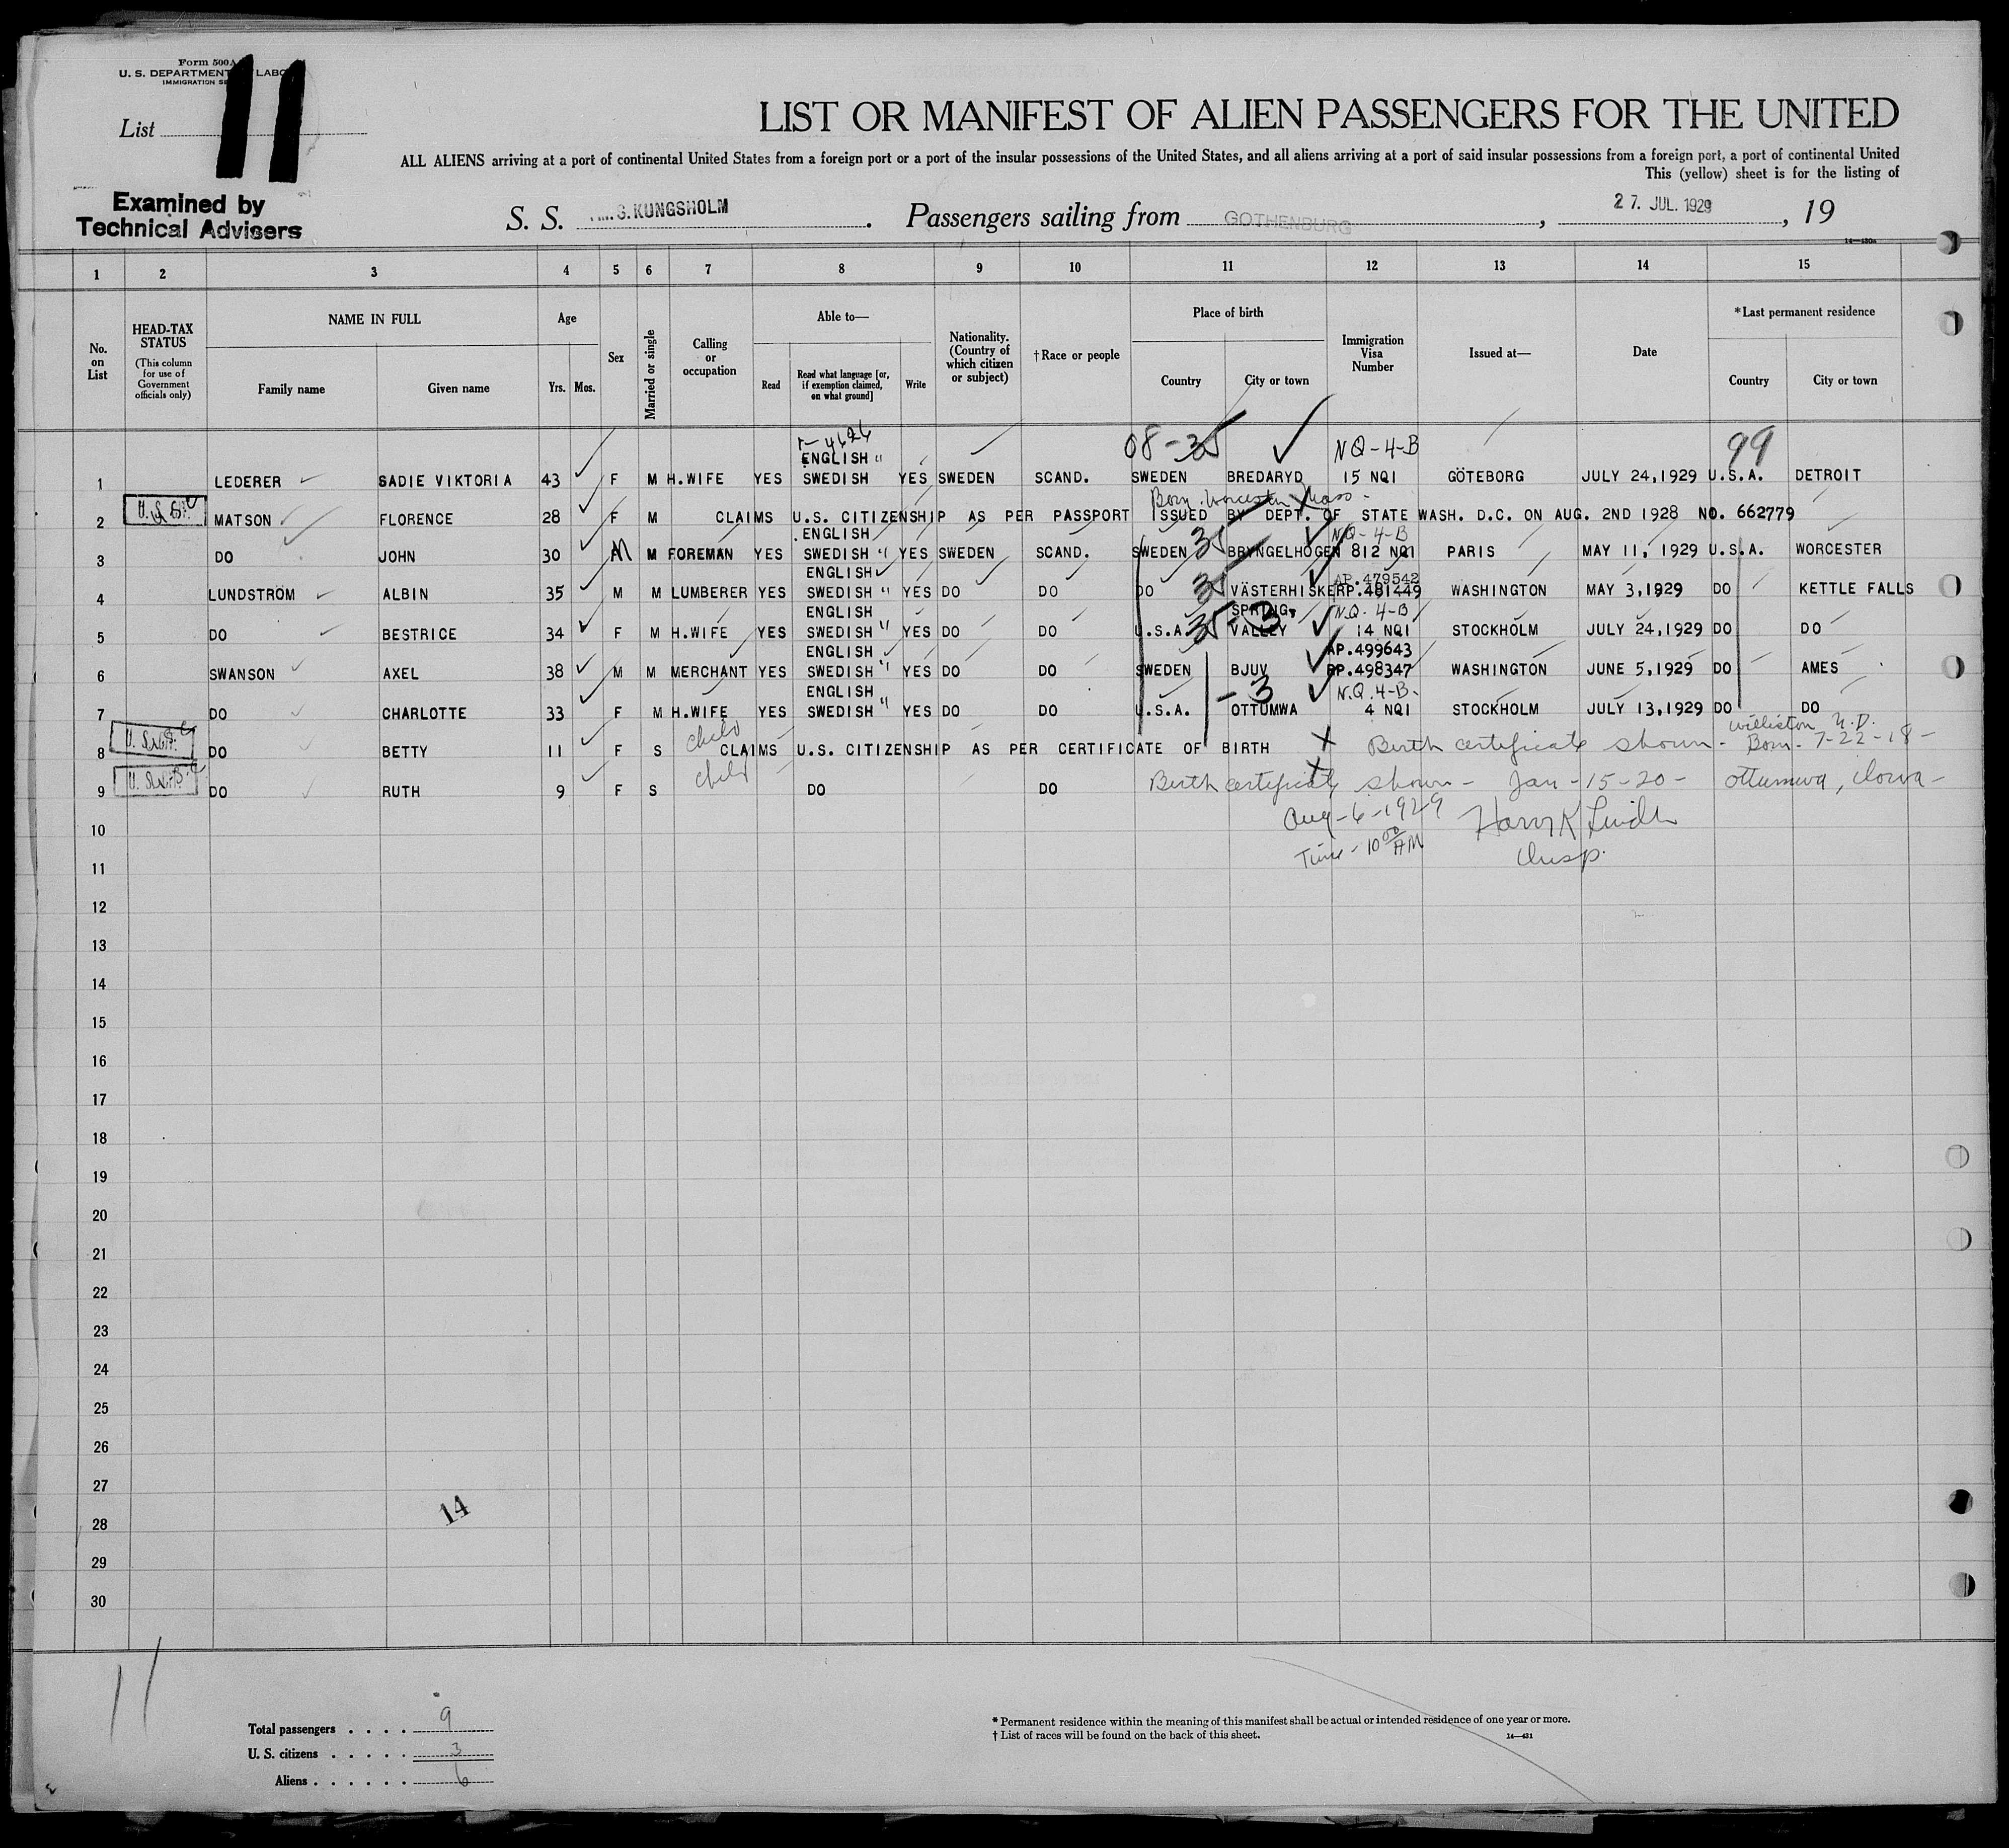 Form 500A
U. S. DEPARTMENT LABO
IMMIGRATION SE
List 11
LIST OR MANIFEST OF ALIEN PASSENGERS FOR THE UNITED
ALL ALIENS arriving at a port of continental United States from a foreign port or a port of the insular possessions of the United States, and all aliens arriving at a port of said insular possessions from a foreign port, a port of continental United
This (yellow) sheet is for the listing of
Examined by
Technical Advisers
S. S. M.S. KUNGSHOLM. Passengers sailing from GOTHENBURG, 27. JUL. 1929, 19
14—430a
1 2 3 4 5 6 7 8 9 10 11 12 13 14 15
No. on List
HEAD-TAX STATUS
(This column for use of Government officials only)
NAME IN FULL
Family name
Given name
Age
Yrs. Mos.
Sex
Married or single
Calling or occupation
Able to—
Read
Read what language [or, if exemption claimed, on what ground]
Write
Nationality. (Country of which citizen or subject)
† Race or people
Place of birth
Country
City or town
Immigration Visa Number
Issued at—
Date
*Last permanent residence
Country
City or town
08-35 NQ-4-B 99
ENGLISH "
1 LEDERER SADIE VIKTORIA 43 F M H.WIFE YES SWEDISH YES SWEDEN SCAND. SWEDEN BREDARYD 15 NQI GÖTEBORG JULY 24,1929 U.S.A. DETROIT
Born Worcester Mass-
2 MATSON FLORENCE 28 F M CLAIMS U.S. CITIZENSHIP AS PER PASSPORT ISSUED BY DEPT. OF STATE WASH. D.C. ON AUG. 2ND 1928 NO. 662779
ENGLISH NQ-4-B
3 DO JOHN 30 M M FOREMAN YES SWEDISH " YES SWEDEN SCAND. SWEDEN 35 BRYNGELHÖGEN 812 NQI PARIS MAY 11, 1929 U.S.A. WORCESTER
ENGLISH AP.479542
4 LUNDSTRÖM ALBIN 35 M M LUMBERER YES SWEDISH " YES DO DO DO 35 VÄSTERHISKE RP.481449 WASHINGTON MAY 3,1929 DO KETTLE FALLS
ENGLISH SPRING N.Q. 4-B
5 DO BESTRICE 34 F M H.WIFE YES SWEDISH " YES DO DO U.S.A. 35-3 VALLEY 14 NQI STOCKHOLM JULY 24,1929 DO DO
ENGLISH AP.499643
6 SWANSON AXEL 38 M M MERCHANT YES SWEDISH " YES DO DO SWEDEN BJUV RP.498347 WASHINGTON JUNE 5,1929 DO AMES
ENGLISH -3 N.Q.4-B-
7 DO CHARLOTTE 33 F M H.WIFE YES SWEDISH " YES DO DO U.S.A. OTTUMWA 4 NQI STOCKHOLM JULY 13,1929 DO DO
child Williston N.D.
8 DO BETTY 11 F S CLAIMS U.S. CITIZENSHIP AS PER CERTIFICATE OF BIRTH Birth certificate shown - Born - 7-22-18-
child
9 DO RUTH 9 F S DO DO Birth certificate shown - Jan-15-20- Ottumwa, Iowa-
Aug-6-1929
Time-10 00 AM
Insp.
10
11
12
13
14
15
16
17
18
19
20
21
22
23
24
25
26
27
14
28
29
30
11
Total passengers . . . . 9
U. S. citizens . . . . . 3
Aliens . . . . . . 6
* Permanent residence within the meaning of this manifest shall be actual or intended residence of one year or more.
† List of races will be found on the back of this sheet.
14—431